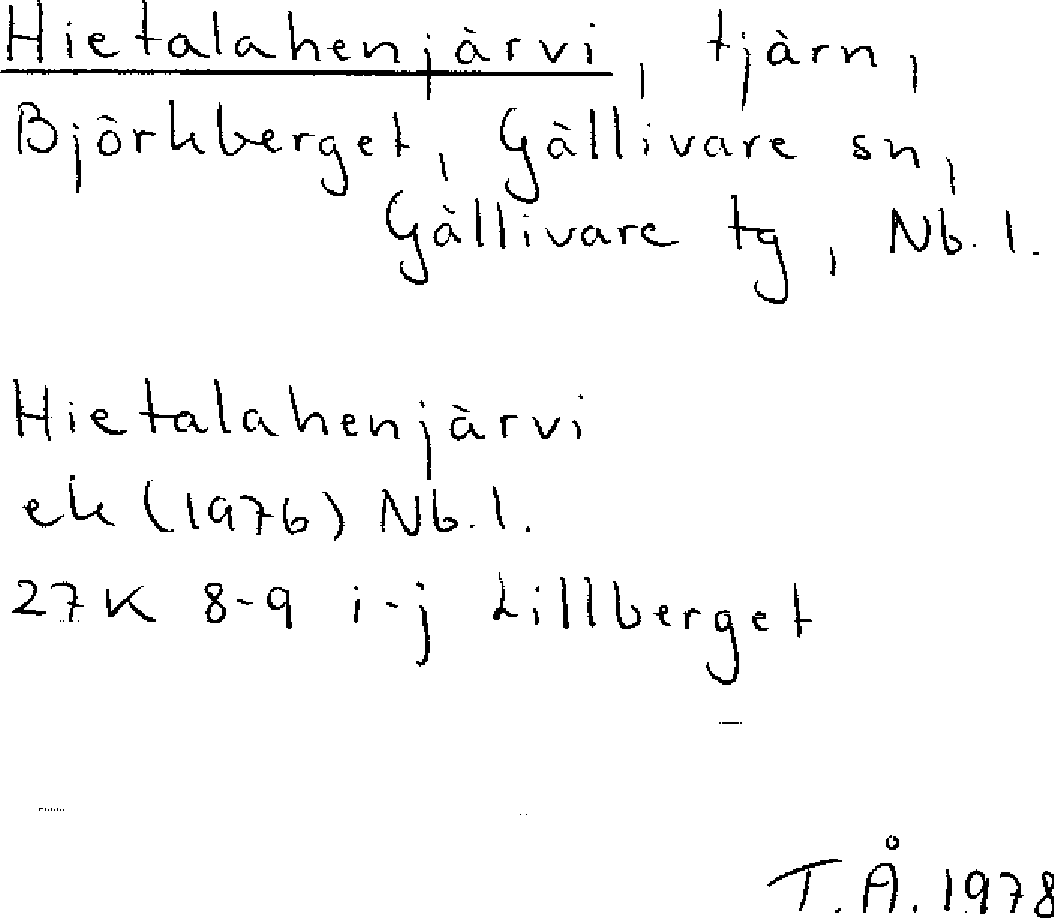 Hietalahenjärvi, tjärn,
Björkberget, Gällivare sn,
Gällivare tg, Nb. l.
Hietalahenjärvi
ek (1976) Nb. l.
27K 8-9 i-j Lillberget
T.Å. 1978